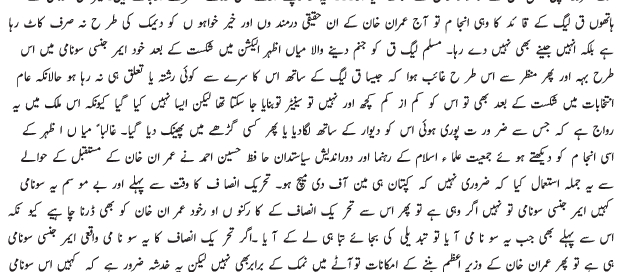 ہاتھوں ق لیگ کے قائد کا وہی انجام تو آج عمران خان کے ان حقیقی درمندوں اور خیر خواہوں کو دیمک کی طرح نہ صرف کاٹ رہا
ہے بلکہ انہیں جینے بھی نہیں دے رہا۔ مسلم لیگ ق کو جنم دینے والا میاں اظہر الیکشن میں شکست کے بعد خود ایمرجنسی سونامی میں اس
طرح بہہ اور پھر منظر سے اس طرح غائب ہوا کہ جیسا ق لیگ کے ساتھ اس کا سرے سے کوئی رشتہ یا تعلق ہی نہ رہا ہو حالانکہ عام
انتخابات میں شکست کے بعد بھی تو اس کو کم از کم کچھ اور نہیں تو سینیٹر تو بنایا جا سکتا تھا لیکن ایسا نہیں کیا گیا کیونکہ اس ملک میں یہ
رواج ہے کہ جس سے ضرورت پوری ہوئی اس کو دیوار کے ساتھ لگا دیا یا پھر کسی گڑھے میں پھینک دیا گیا۔ غالباً میاں اظہر کے
اسی انجام کو دیکھتے ہوئے جمعیت علماء اسلام کے رہنما اور دوراندیش سیاستدان حافظ حسین احمد نے عمران خان کے مستقبل کے حوالے
سے یہ جملہ استعمال کیا کہ ضروری نہیں کہ کپتان ہی مین آف دی میچ ہو۔ تحریک انصاف کا وقت سے پہلے اور بے موسم یہ سونامی
کہیں ایمرجنسی سونامی تو نہیں اگر وہی ہے تو پھر اس سے تحریک انصاف کے کارکنوں اور خود عمران خان کو بھی ڈرنا چاہیے کیونکہ
اس سے پہلے بھی جب یہ سونامی آیا تو تبدیلی کی بجائے تباہی لے کے آیا۔ اگر تحریک انصاف کا یہ سونامی واقعی ایمرجنسی سونامی
ہی ہے تو پھر عمران خان کے وزیراعظم بننے کے امکانات تو آٹے میں نمک کے برابر بھی نہیں لیکن یہ خدشہ ضرور ہے کہ کہیں اس سونامی